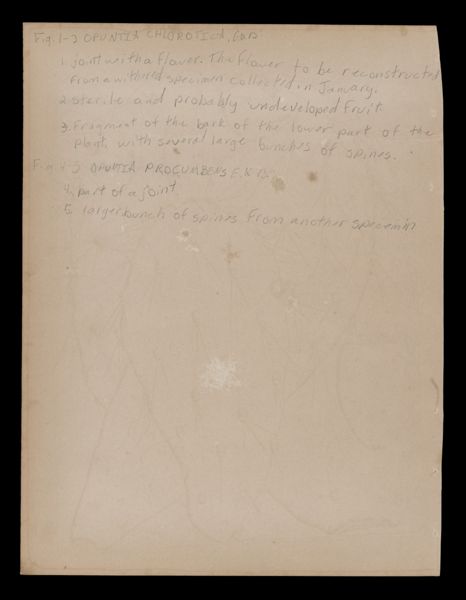 Fig. 1-3 OPUNTIA CHLOROTICA, E&B
1. joint with a flower. The flower to be reconstructed
from a withered specimen collected in January.
2 sterile and probably undeveloped fruit
3. Fragment of the bark of the lower part of the
plant, with several large bunches of spines.
Fig 4-5 OPUNTIA PROCUMBENS E. & B.
4. part of a joint
5. larger bunch of spines from another specemin